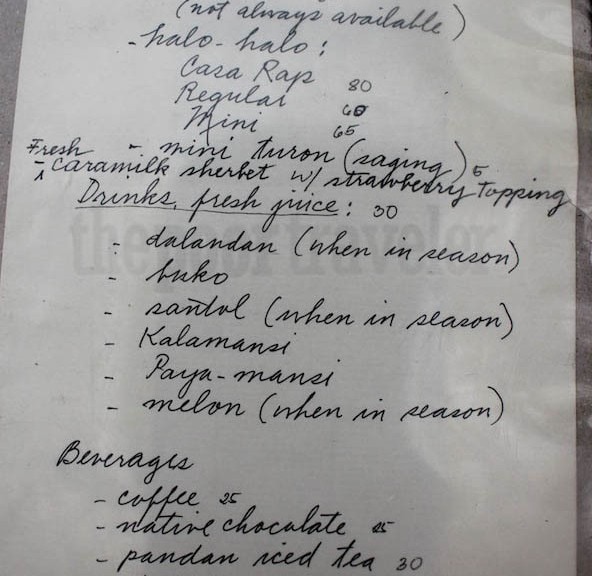 (not always available)
- halo-halo:
Casa Rap 80
Regular 60
Mini 65
- mini turon (saging) 5
Fresh
- caramilk sherbet w/ strawberry topping
Drinks, fresh juice: 30
- dalandan (when in season)
- buko
- santol (when in season)
- Kalamansi
- Paya-mansi
- melon (when in season)
Beverages
- coffee 25
- native chocolate 25
- pandan iced tea 30
the poor traveler